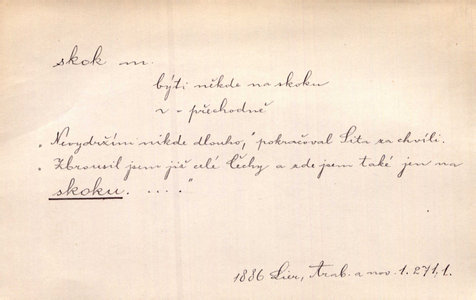 skok m.
býti někde na skoku
v - přechodně
„Nevydržím nikde dlouho,“ pokračoval Sita za chvíli.
„Zbrousil jsem již celé Čechy a zde jsem také jen na
skoku. . . . .“
1886 Lier, Arab. a nov. 1. 271,1.